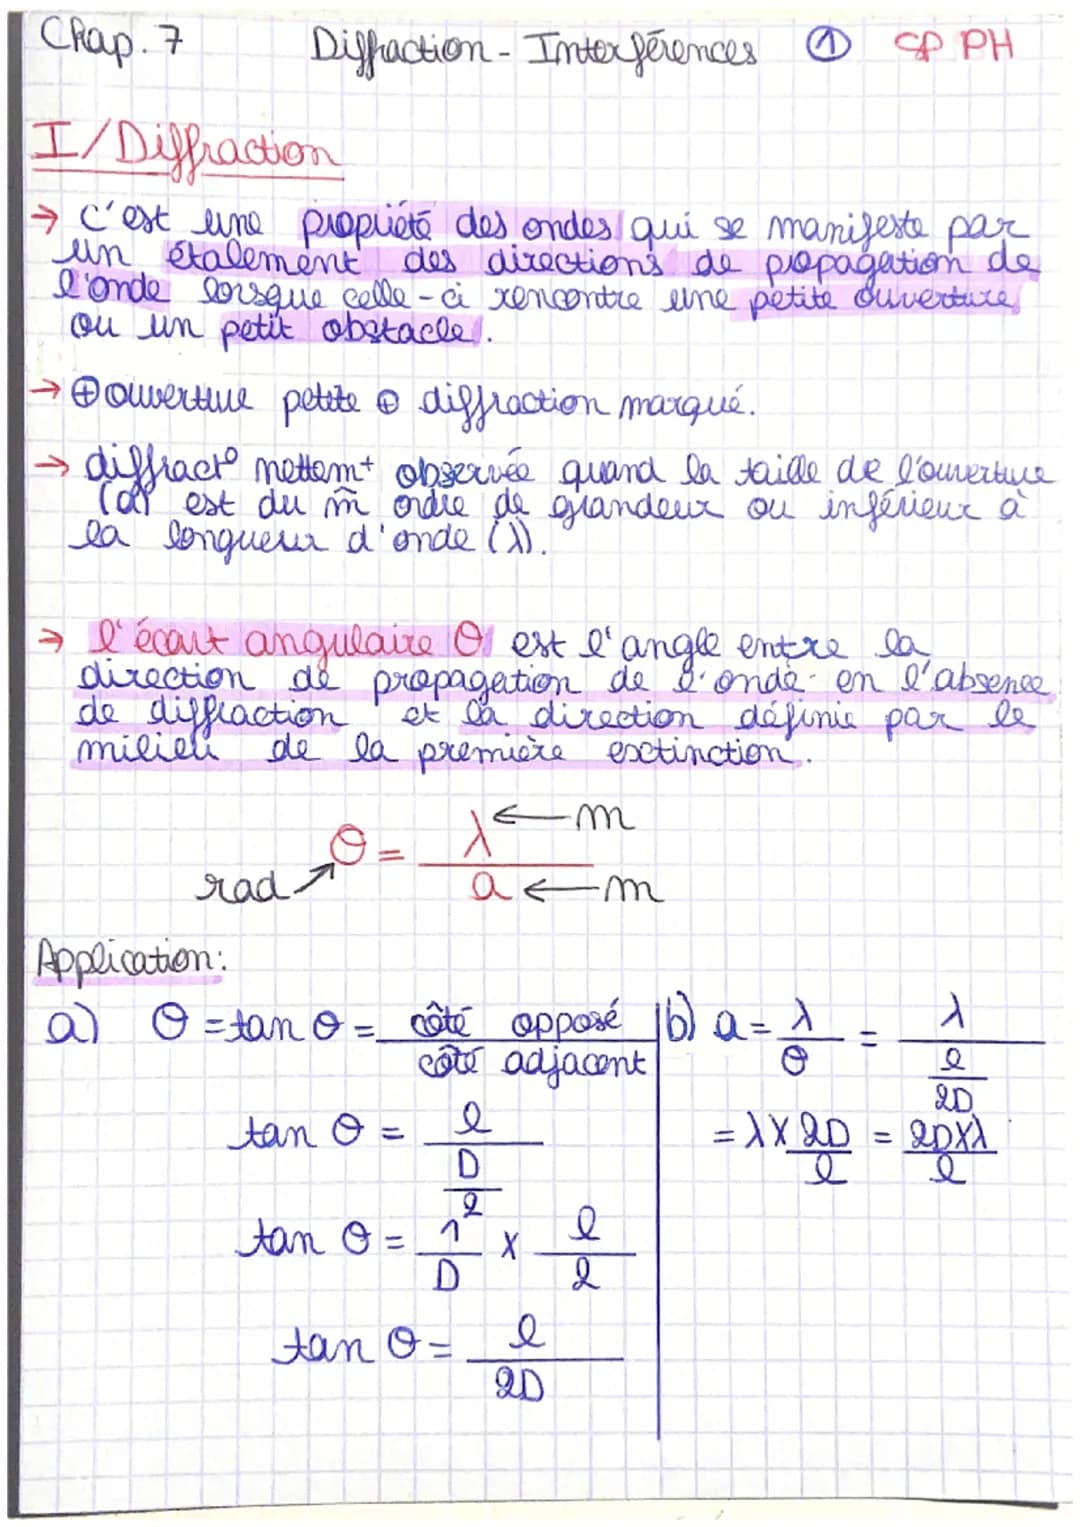 Chap. 7 Diffraction - Interférences ① SP PH
I/ Diffraction
→ c'est une propriété des ondes qui se manifeste par
un étalement des directions de propagation de
l'onde lorsque celle-ci rencontre une petite ouverture
ou un petit obstacle.
→ ⊕ ouverture petite ⊕ diffraction marqué.
→ diffract° nettem^t observée quand la taille de l'ouverture
(a) est du m̃ ordre de grandeur ou inférieur à
la longueur d'onde (λ).
→ l'écart angulaire θ est l'angle entre la
direction de propagation de l'onde en l'absence
de diffraction et la direction définie par le
milieu de la première extinction.
rad → θ = λ ← m / a ← m
Application:
a) θ = tan θ = côté opposé / côté adjacent
tan θ = l / D / 2
tan θ = 1 / D × l / 2
tan θ = l / 2D
b) a = λ / θ = λ / l / 2D
= λ × 2D / l = 2D×λ / l